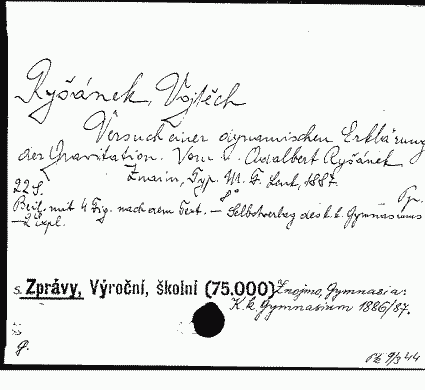 Ryšánek, Vojtěch
Versuch einer dynamischen Erklärung
der Gravitation. Vom Adalbert Ryšánek
Znaim, Typ. M. F. Lenk, 1887.
22 S. 8° Typ.
Beil. mit 4 Fig. nach dem Text. – Selbstverlag des k. k. Gymnasiums
– 2 expl.
s. Zprávy, Výroční, školní (75.000) Znojmo, Gymnasia:
K. k. Gymnasium 1886/87.
g.
9/3 44